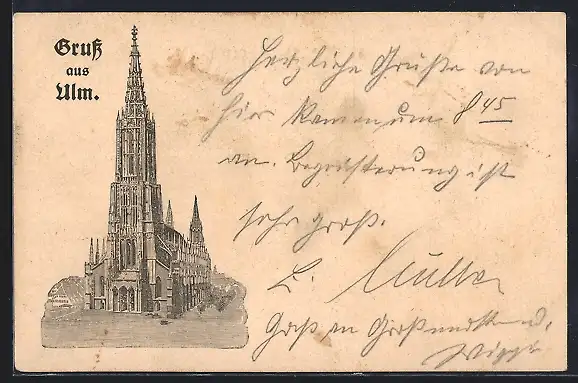 Gruß
aus
Ulm.
Herzliche Grüße von
hier kamen um 8 45
an. Begeisterung ist
sehr groß.
L. Müller